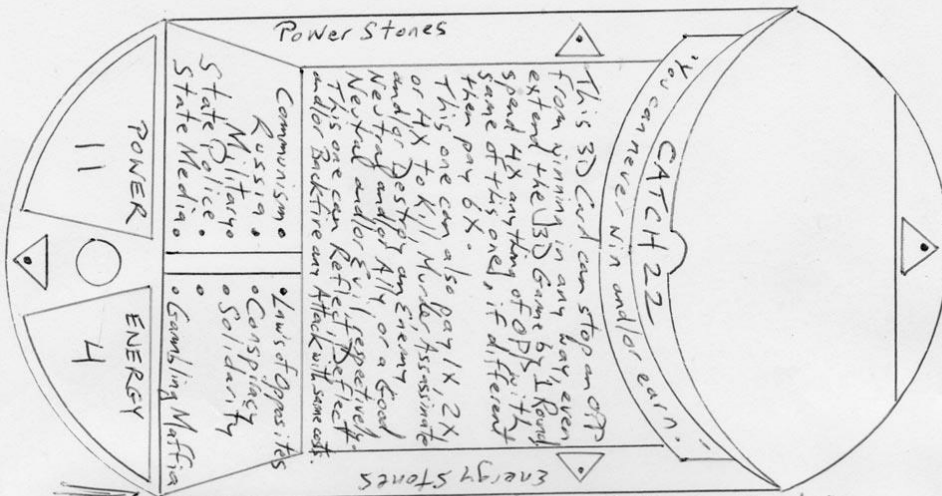 CATCH 22
"You can never Win and/or earn."
Power Stones
Energy Stones
This 3D Card can stop an OPP
from winning in any way, even
extend the 3D Game by 1 Round
spend 4X anything of OPPs with
same of this ones, if different
then pay 6X.
This one can also pay 1X, 2X
or 4X to Kill, Murder, Assassinate
and/or Destroy an Enemy
Neutral and/or Ally, or a Good
Neutral and/or Evil, respectively.
This one can Reflect, Deflect
and/or Backfire any Attack with same costs.
Communism •
Russia •
Military •
State Police •
State Media •
• Laws of Opposites
• Conspiracy
• Solidarity
•
• Gambling Maffia
POWER
11
ENERGY
4